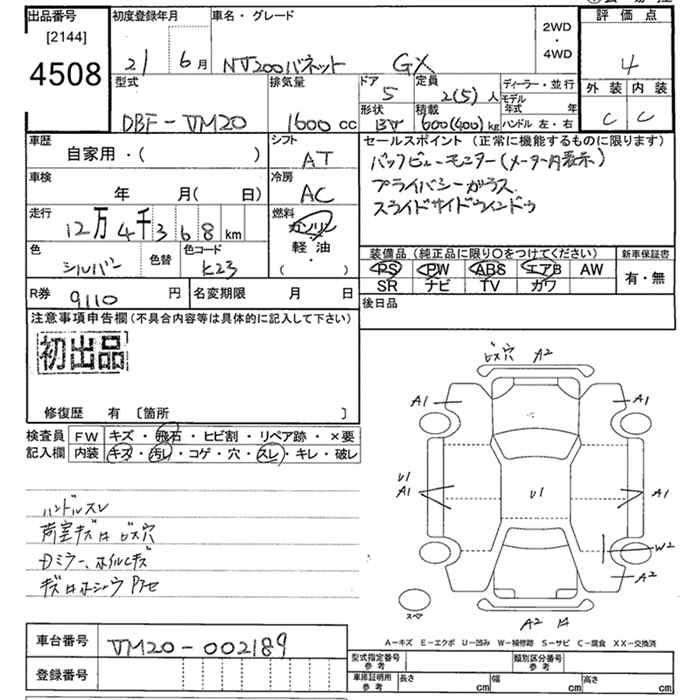 出品番号
[2144]
4508
初度登録年月
21 6月
車名・グレード
NV200バネット GX
2WD
・
4WD
評価点
4
外装 内装
C C
型式
DBF-VM20
排気量
1600cc
ドア
5
定員
2(5)人
形状
BV
積載
600(400)kg
ディーラー・並行
モデル年式 年
ハンドル 左・右
車歴
自家用・( )
シフト
AT
車検
年 月( 日)
冷房
AC
走行
12万4千368km
燃料
ガソリン
軽油
・
( )
色
シルバー
色替
色コード
K23
R券
9110円
名変期限 月 日
セールスポイント(正常に機能するものに限ります)
バックビューモニター(メーター内表示)
プライバシーガラス
スライドサイドウインドウ
装備品(純正品に限り○をつけてください)
PS PW ABS エアB AW
SR ナビ TV ガワ
新車保証書
有・無
後日品
注意事項申告欄(不具合内容等は具体的に記入して下さい)
初出品
修復歴 有 〔箇所 〕
検査員記入欄
FW キズ・飛石・ヒビ割・リペア跡・×要
内装 キズ・汚レ・コゲ・穴・スレ・キレ・破レ
ハンドルスレ
荷室キズ ビス穴
Dミラー、ホイルキズ
ビス穴 A2
A1 A1
U1
A1
U1
A1
W2
A2
スペア
A2
A-キズ E-エクボ U-凹み W-補修跡 S-サビ C-腐食 XX-交換済
車台番号
VM20-002189
登録番号
型式指定番号 参考
類別区分番号 参考
車庫証明用 参考
長さ cm 幅 cm 高さ cm